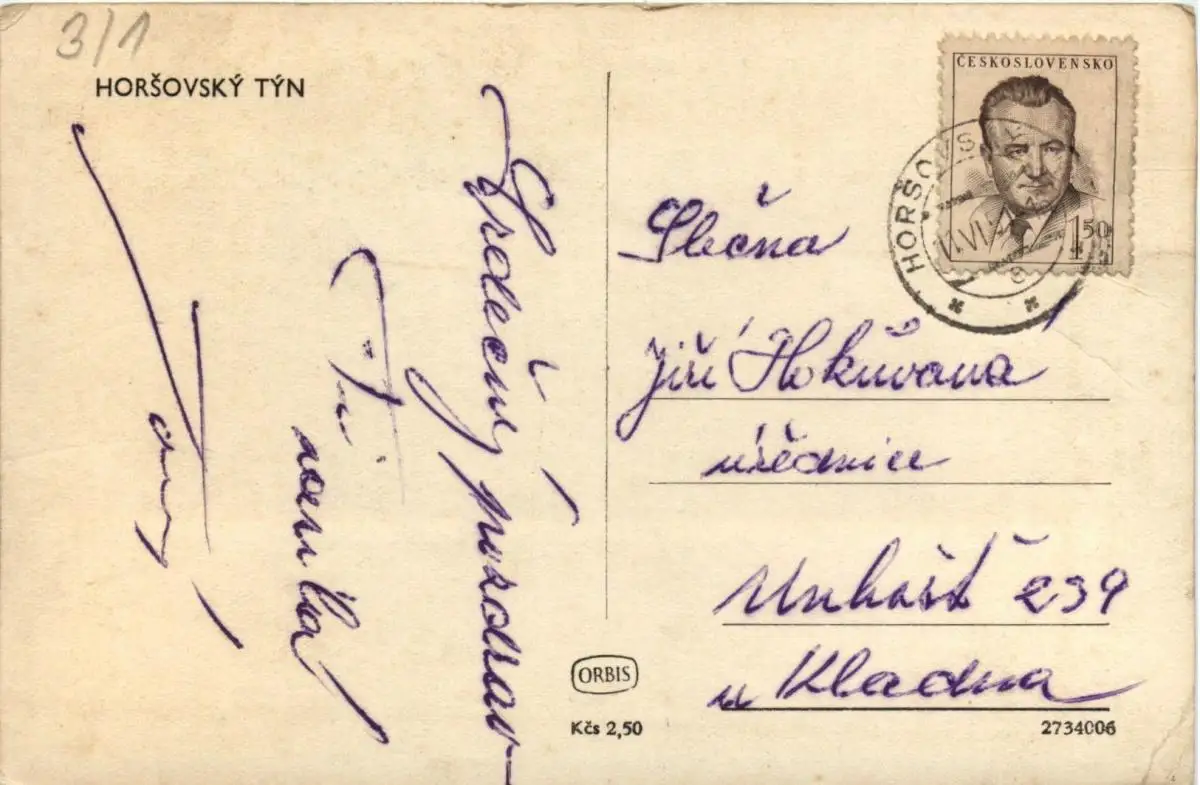 3/1
HORŠOVSKÝ TÝN
Srdečný pozdrav
ČESKOSLOVENSKO
1,50
HORŠOVSK
VI
Slečna
Jiří
úřednice
Unhošť 239
u Kladna
ORBIS
Kčs 2,50
2734006